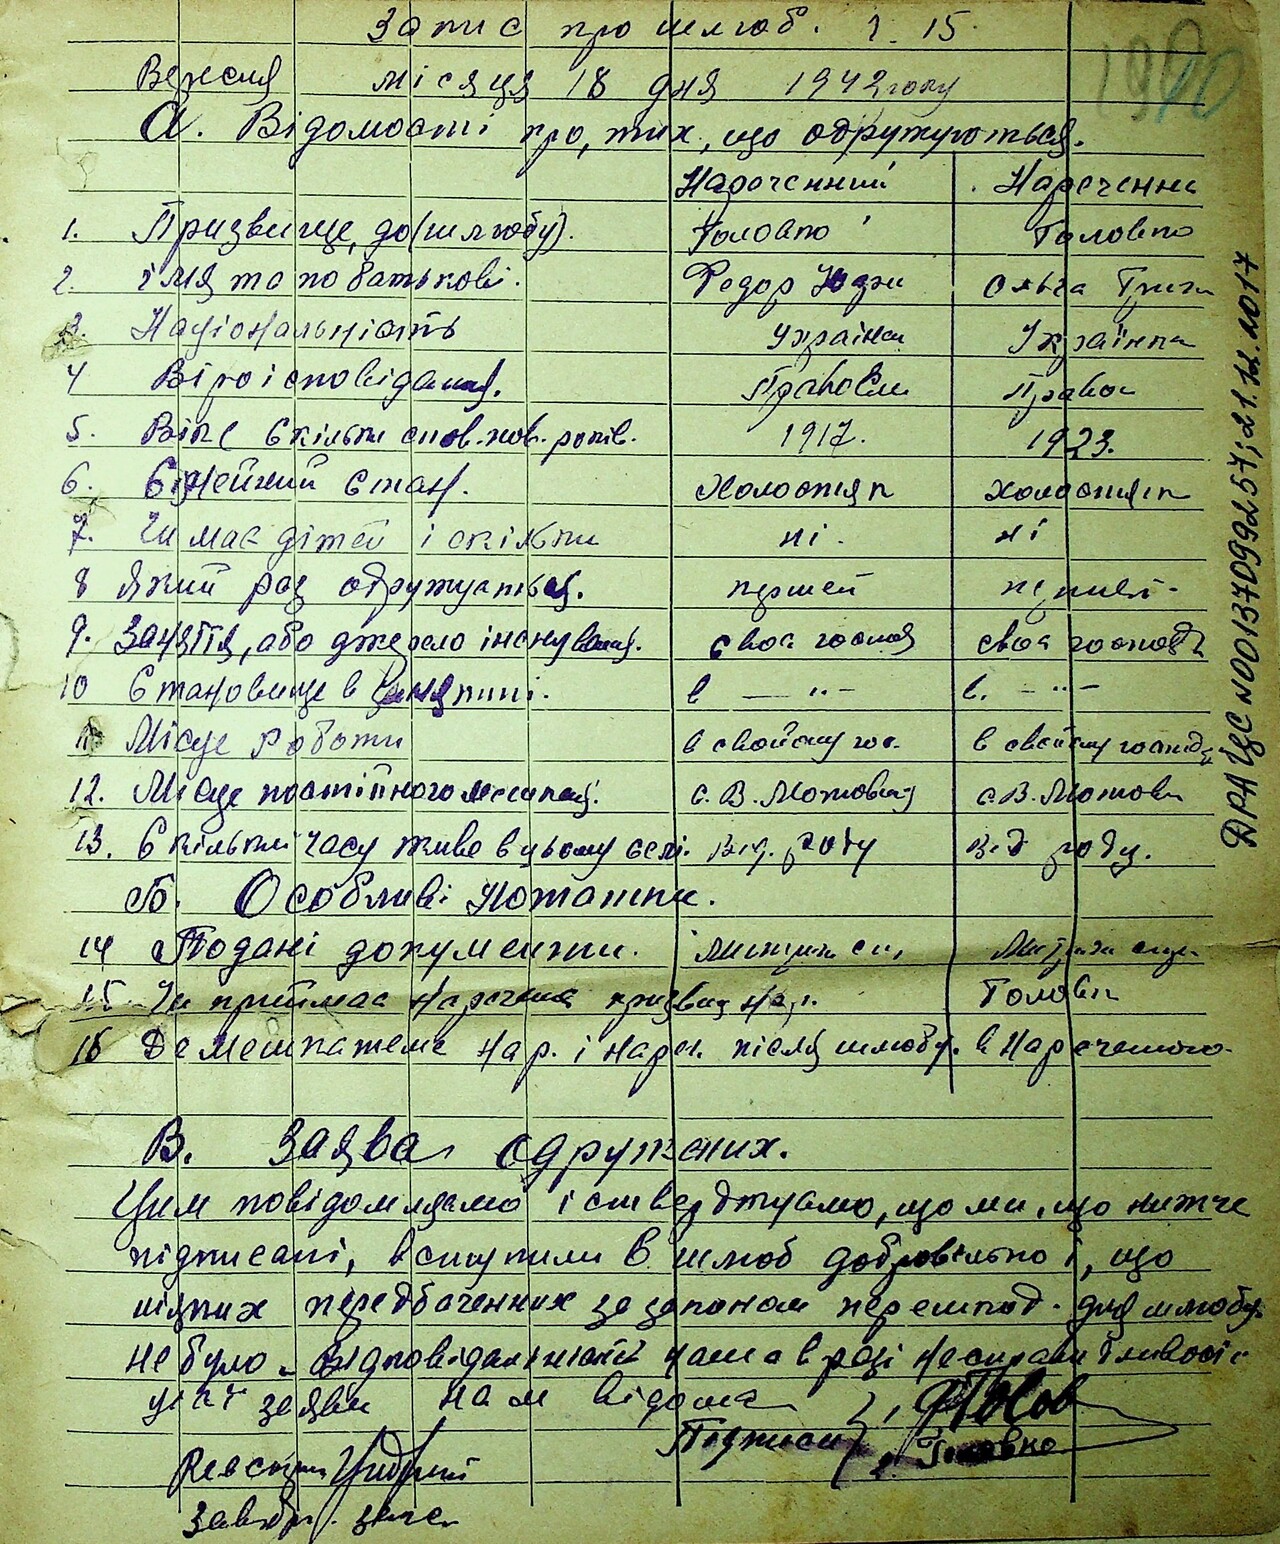 Запис про шлюб. ч. 15.
Вересня місяця 18 дня 1942 року
А. Відомості про, тих, що одружуються.
Нареченний Нареченна
1. Призвище, до(шлюбу). Головко Головко
2. імя та по батькові. Федор Ольга Григ
3. Національність Українец Українка
4 Віроісповідання. Православ Правос
5. Вік (скільки спов. нов. років. 1917. 1923.
6. Сімейний стан. Холостяк холостяк
7. Чи має дітей і скільки ні. ні
8 Який раз одружується. першей первей-
9. Заняття, або джерело існування. своє господ своє господ
10 Становище в занятті. в — " — в. — " —
11 Місце роботи в свойому гос. в свойому господ
12. Місце постійного мешканц. с. В. Мотовил с. В. Мотови
13. Скільки часу живе в цьому селі. Від. роду від роду.
Б. Особливі Нотатки.
14 Подані документи. Метрик Метрика
15. Чи приймає Наречена призвищ Нар. Головк
16 Де мешкатеме нар. і нареч. після шлюбу. в Нареченого.
В. Заява одружених.
Цим повідомляємо і ствердтуємо, що ми, що нижче
підписані, вступили в шлюб добровільно і, що
ніяких передбаченних за законом перешкод. для шлюбу
не було. Відповідальність наша в разі несправедливості
цієї заяви нам відома
Підписи Головко
Реєстрац
Завідр. загса
1990
ДРАЦС №00137099257; 21.12.2017